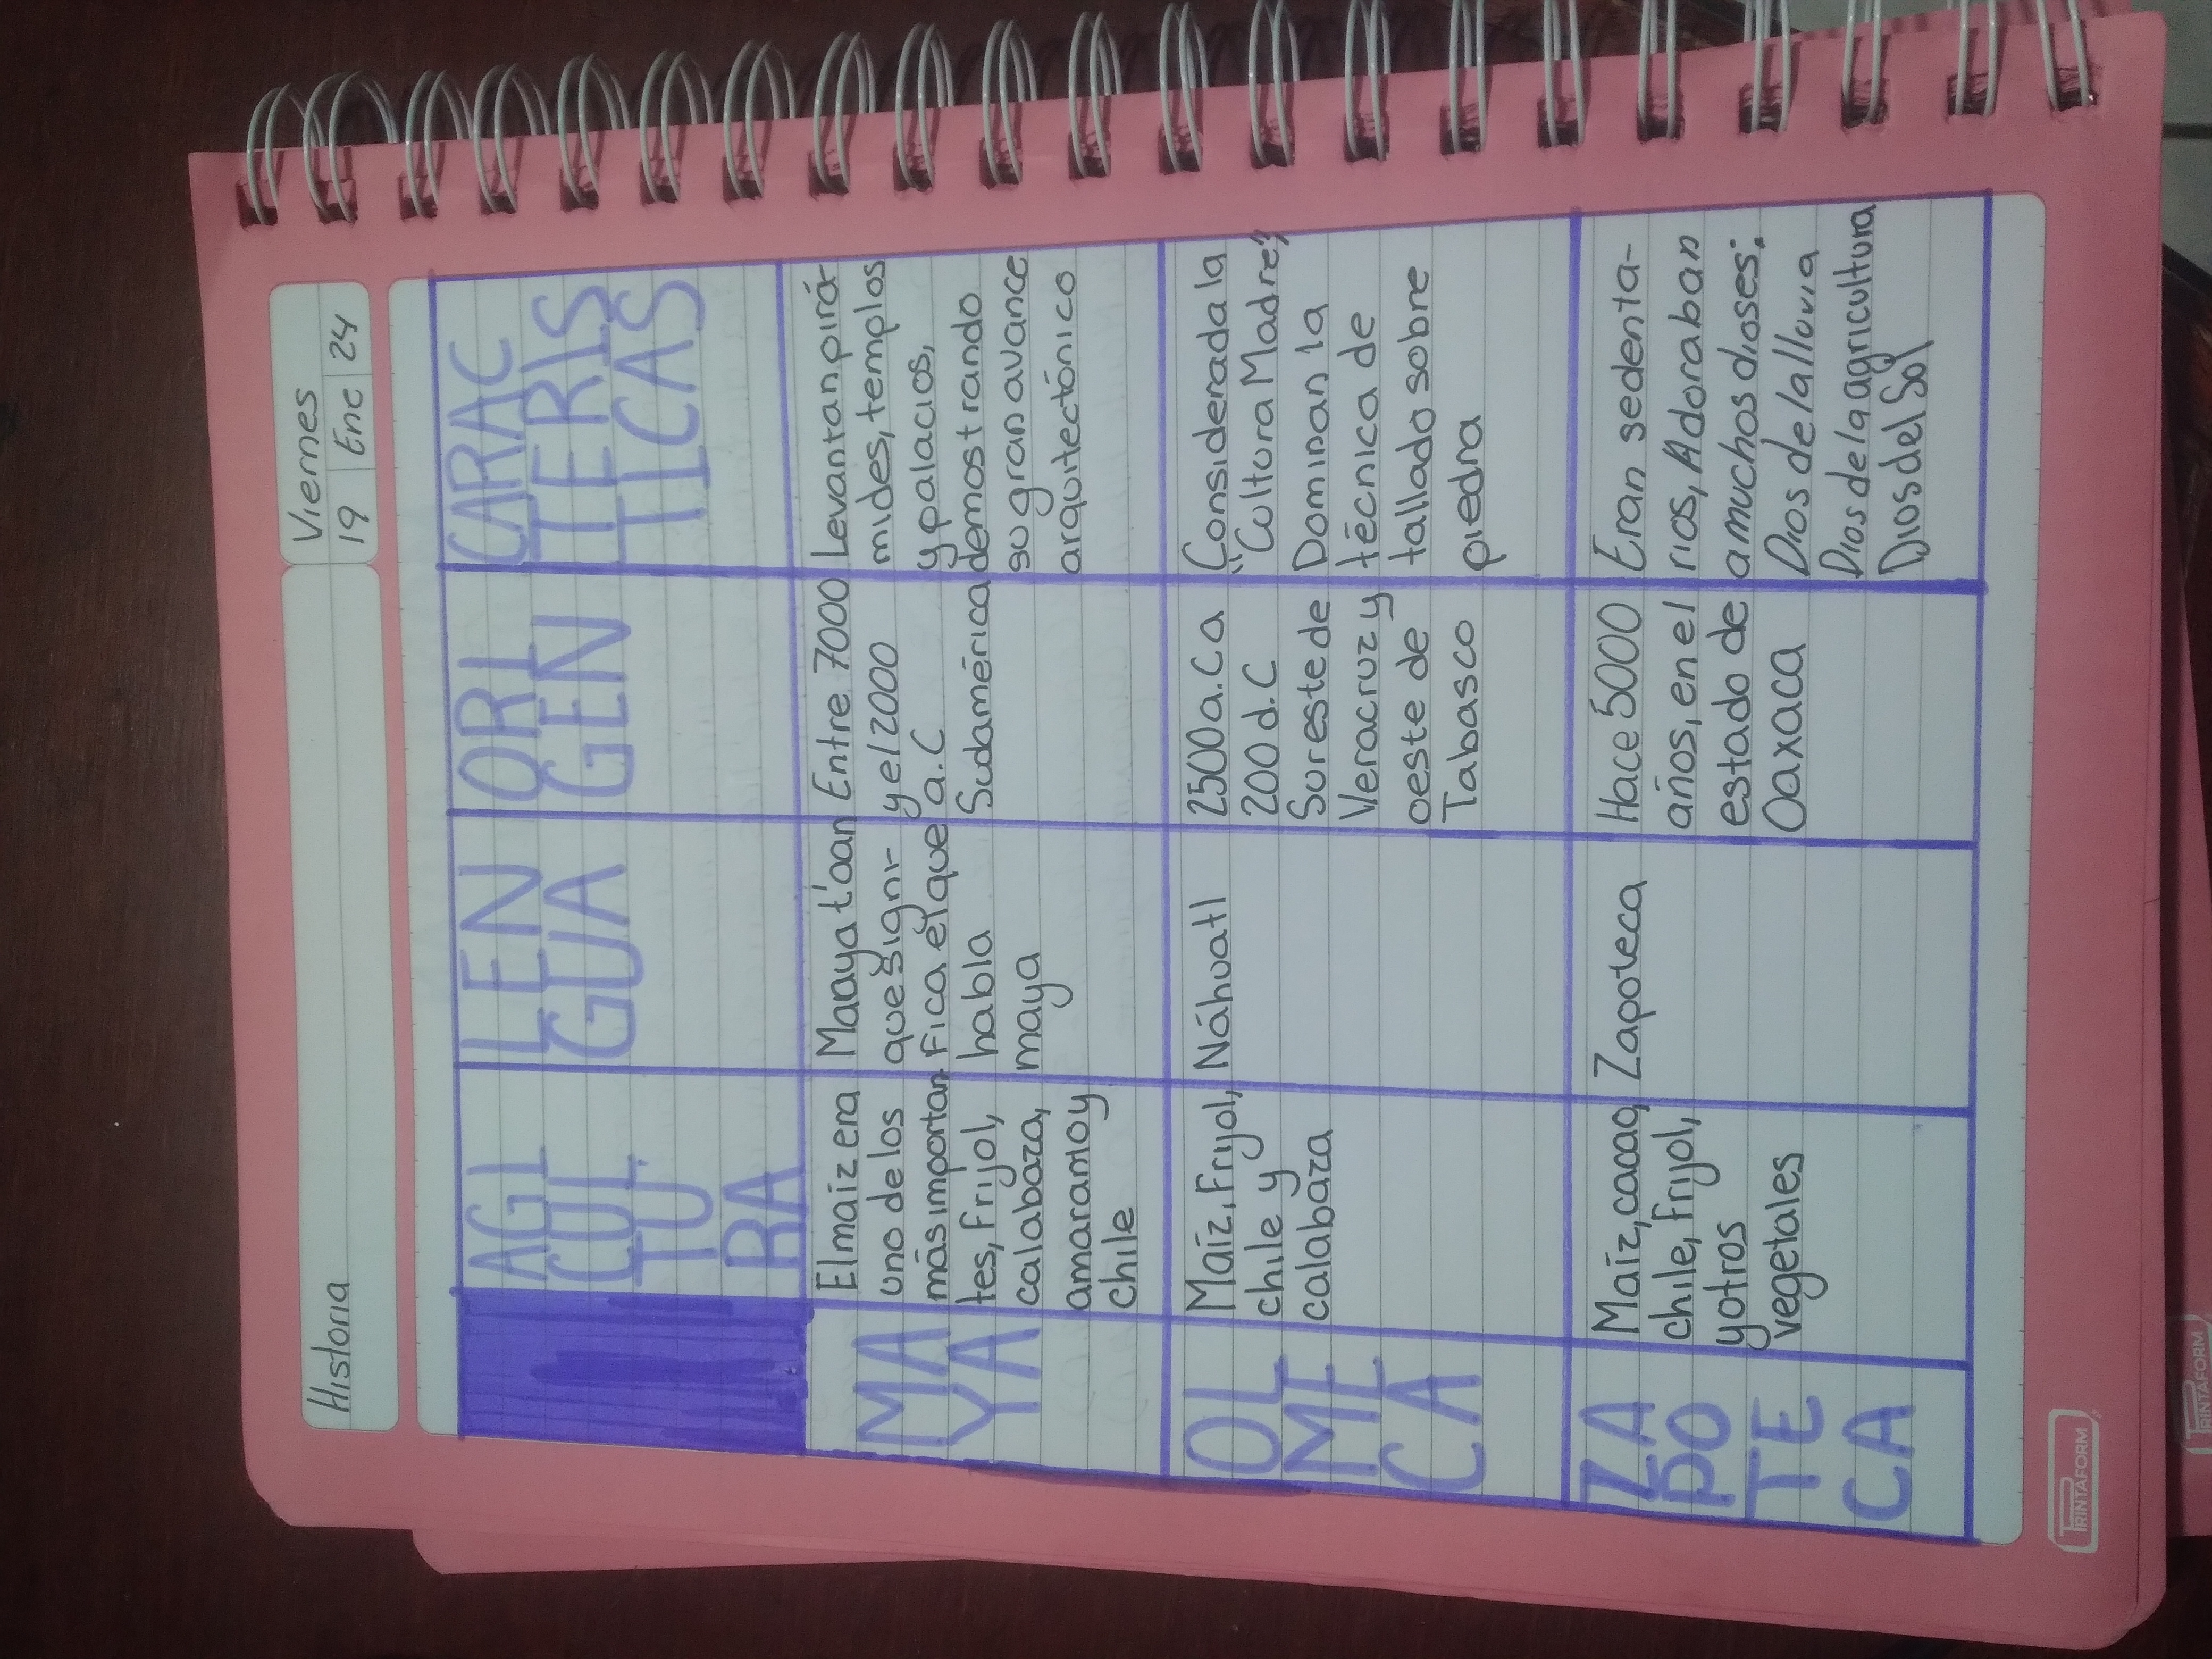 Historia
Viernes
19 Ene 24
AGI
CUL
TU
RA
LEN
GUA
ORI
GEN
CARAC
TERIS
TICAS
MA
YA
El maíz era
uno de los
más importan
tes, frijol,
calabaza,
amaranto y
chile
Maaya t'aan
que signi-
fica el que
habla
maya
Entre 7000
y el 2000
a.C
Sudamérica
Levantan pirá-
mides, templos
y palacios,
demostrando
su gran avance
arquitectónico
OL
ME
CA
Maíz, Frijol,
chile y
calabaza
Náhuatl
2500 a.C a
200 d.C
Sureste de
Veracruz y
oeste de
Tabasco
Considerada la
"Cultura Madre"
Dominan la
técnica de
tallado sobre
piedra
ZA
PO
TE
CA
Maíz, cacao,
chile, frijol,
y otros
vegetales
Zapoteca
Hace 5000
años, en el
estado de
Oaxaca
Eran sedenta-
rios, Adoraban
a muchos dioses:
Dios de la lluvia
Dios de la agricultura
Dios del Sol
PRINTAFORM
PRINTAFORM